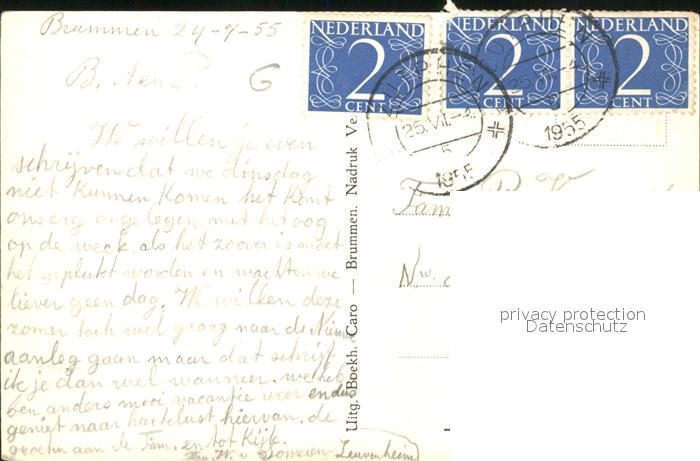 Brummen 24-7-55
B.
We willen je even
schrijven dat we dinsdag
niet kunnen komen het komt
ons erg ongelegen met het oog
op de week als het zoover is moet
het geplukt worden en wachten we
liever geen dag. We willen deze
zomer toch wel graag naar de Nieuwe
aanleg gaan maar dat schrijf
ik je dan wel wanneer. we heb
ben anders mooi vacantie weer en dus
geniet naar hartelust hiervan. de
groeten aan de Fam. en tot Kijk.
Leuvenheim
Uitg. Boekh. Caro — Brummen. Nadruk Ve
NEDERLAND
2
CENT
NEDERLAND
2
CENT
NEDERLAND
2
CENT
25.VII.
1955
1955
Fam
N.w.
privacy protection
Datenschutz